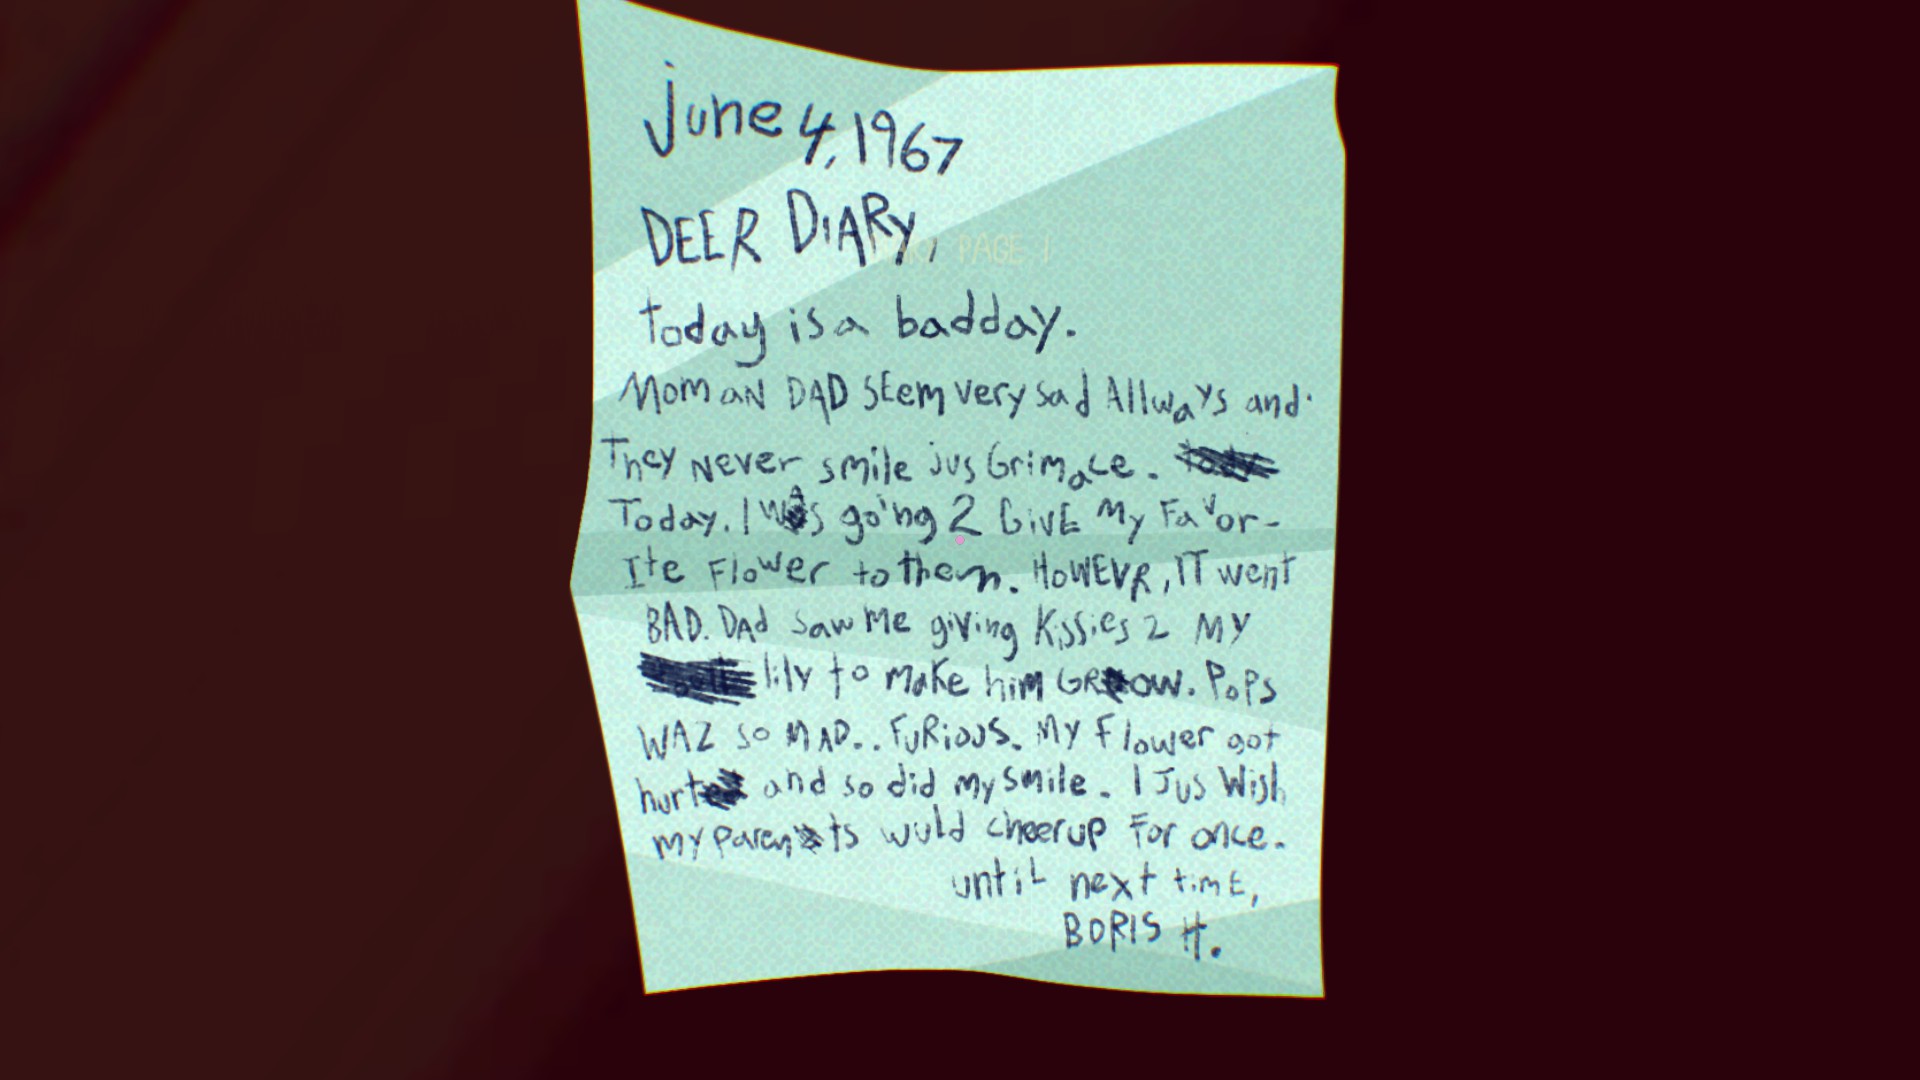 june 4, 1967
DEER DiARy,
PAGE 1
today is a badday.
Mom aN DAD SEEm very sad Allways and
They Never smile jus Grimace.
Today. I wAs going 2 GivE My Favor-
Ite Flower to them. HoWEVR, iT went
BAD. DAd saw Me giving Kissies 2 MY
lily to make him GROW. PoPs
WAZ so MAD.. FuRiouS. My Flower got
hurt and so did my smile. I Jus Wish
my parents wuld cheerup For once.
until next timE,
BORIS H.